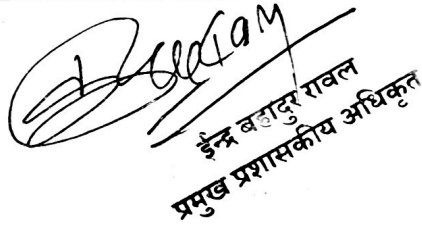 ईन्द्र बहादुर रावल
प्रमुख प्रशासकीय अधिकृत